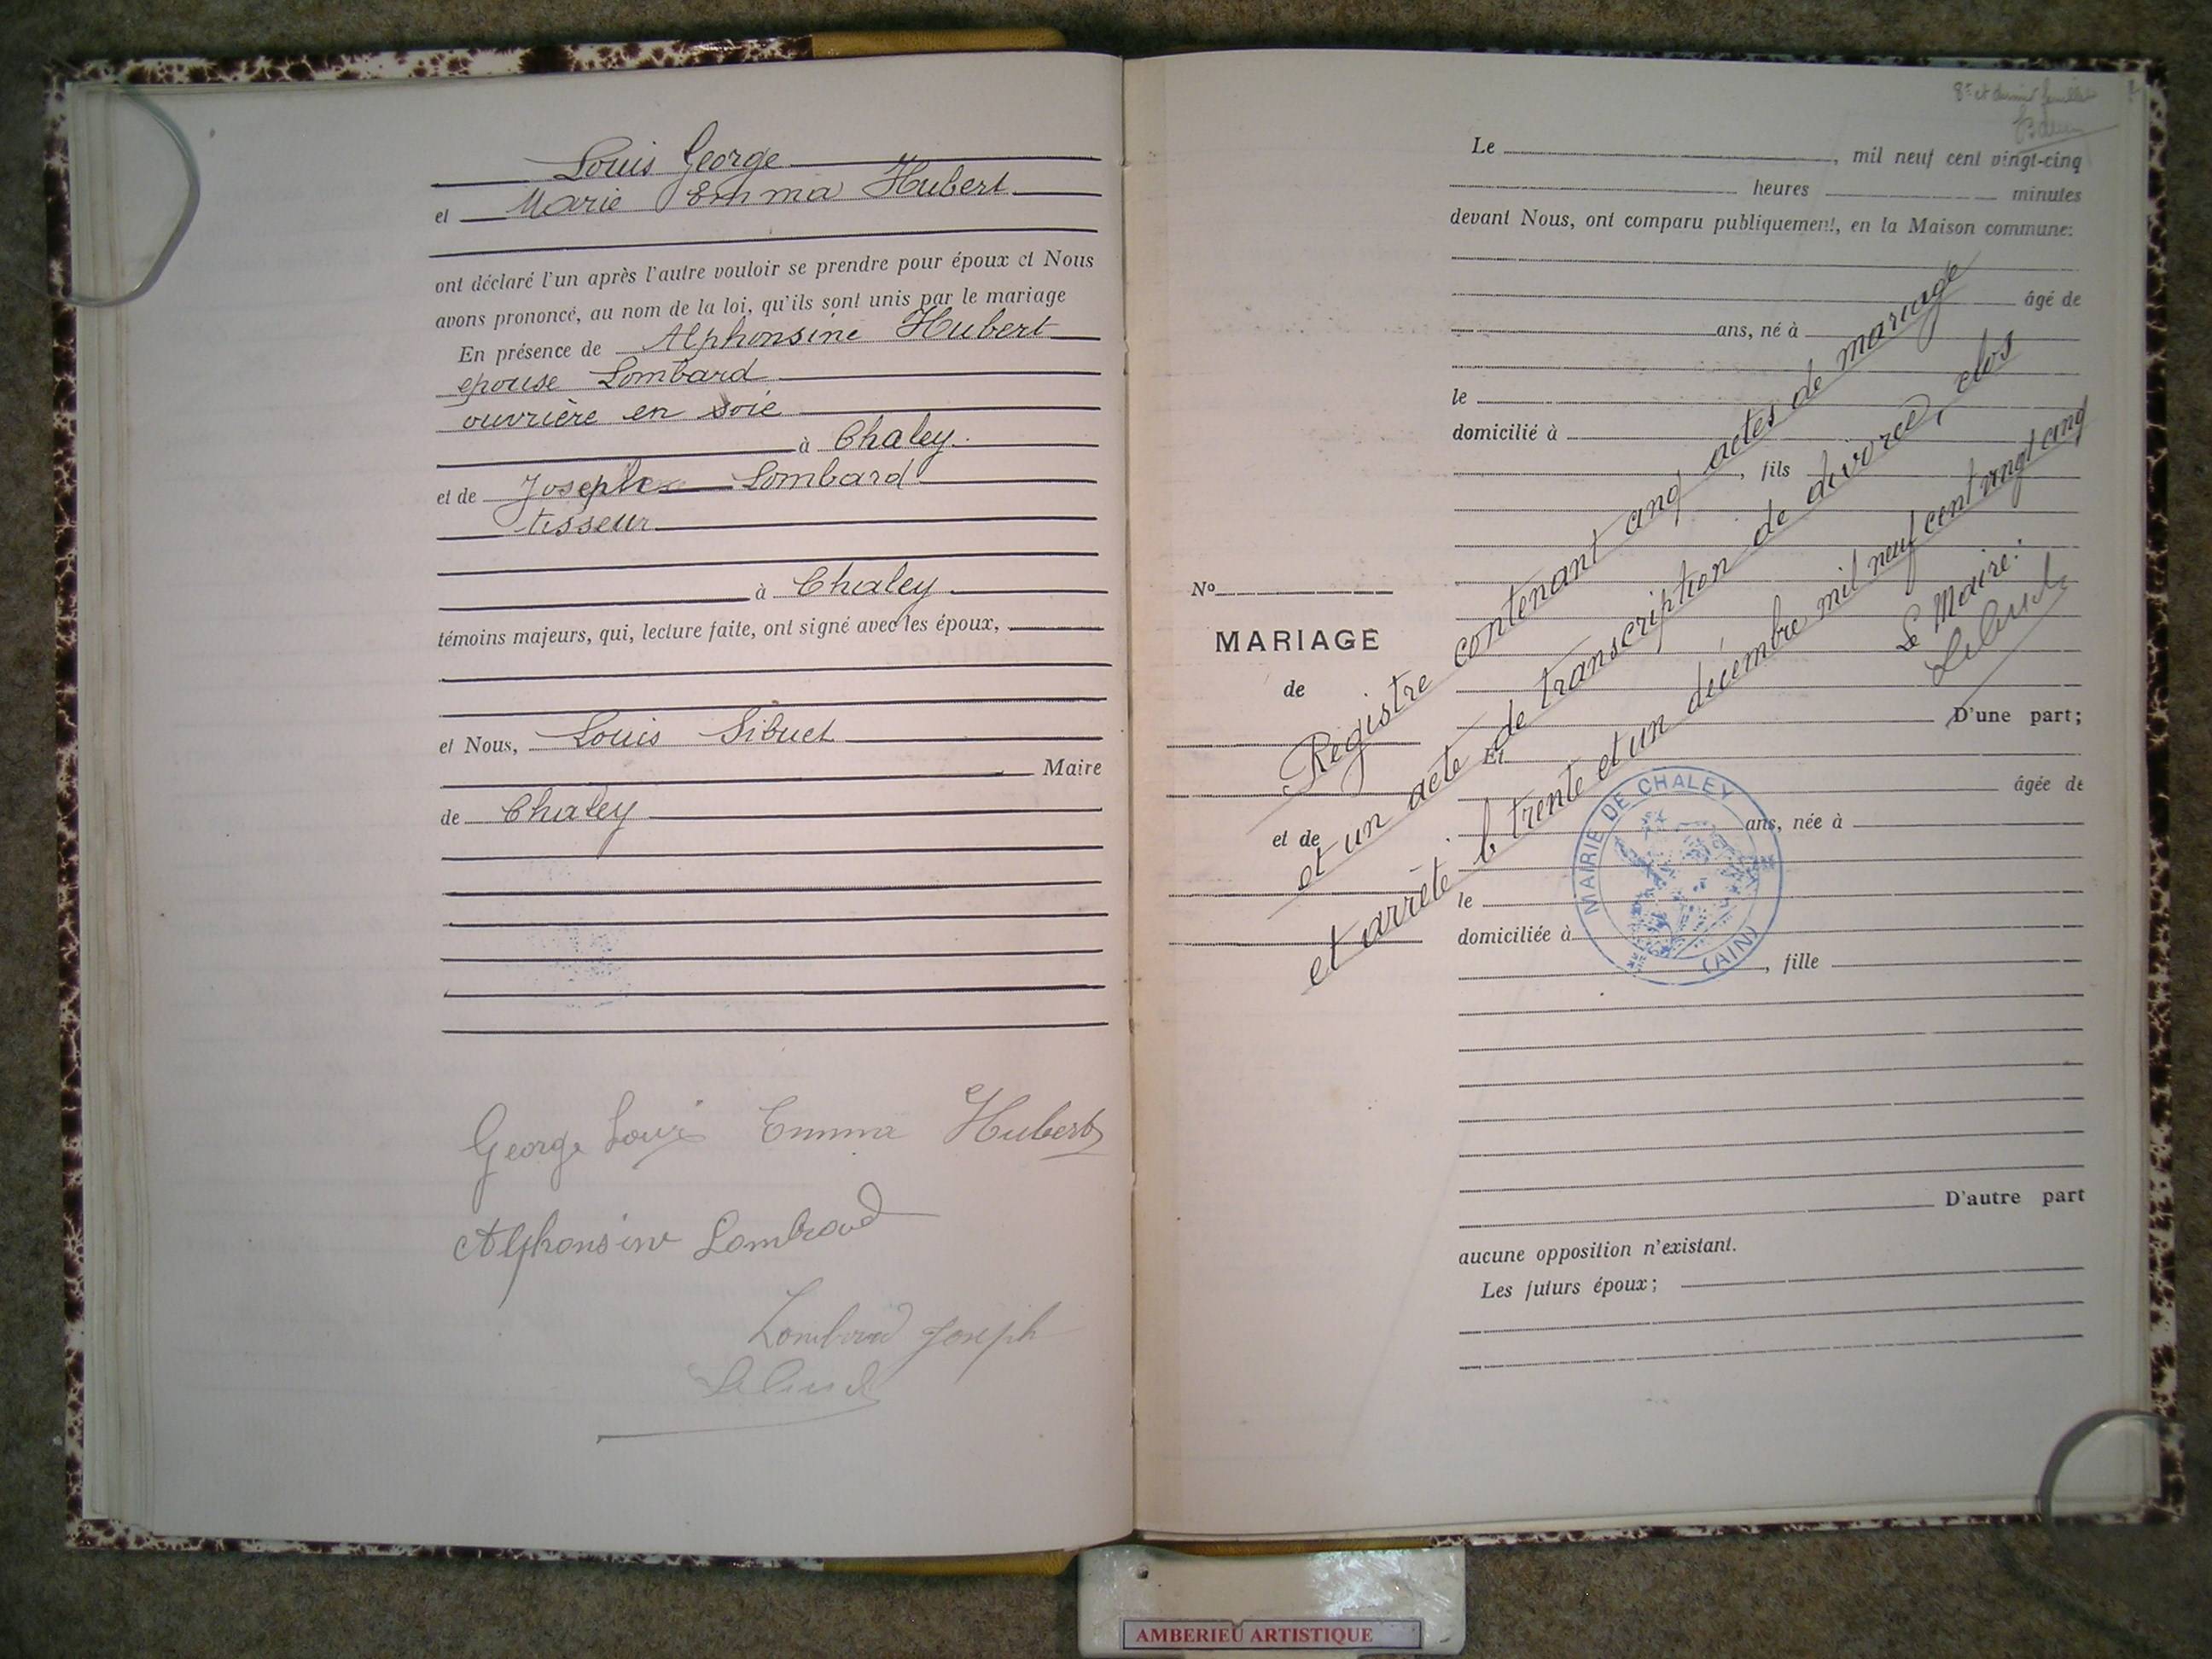 Louis George
et Marie Emma Hubert
ont déclaré l'un après l'autre vouloir se prendre pour époux et Nous
avons prononcé, au nom de la loi, qu'ils sont unis par le mariage
En présence de Alphonsine Hubert
epouse Lombard
ouvrière en soie
à Chaley.
et de Joseph Lombard
tisseur
à Chaley
témoins majeurs, qui, lecture faite, ont signé avec les époux,
et Nous, Louis Sibuet
Maire
de Chaley
George Louis Emma Hubert
Alphonsine Lombard
Lombard Joseph
8e et dernier feuillet
Le , mil neuf cent vingt-cinq
heures minutes
devant Nous, ont comparu publiquement, en la Maison commune:
âgé de
ans, né à
le
domicilié à
, fils
No
MARIAGE
de
D'une part;
Et
âgée de
et de
ans, née à
le
domiciliée à
, fille
D'autre part
aucune opposition n'existant.
Les futurs époux;
Registre contenant cinq actes de mariage
et un acte de transcription de divorce, clos
et arrêté le trente et un décembre mil neuf cent vingt cinq
Le Maire:
MAIRIE DE CHALEY
(AIN)
AMBERIEU ARTISTIQUE